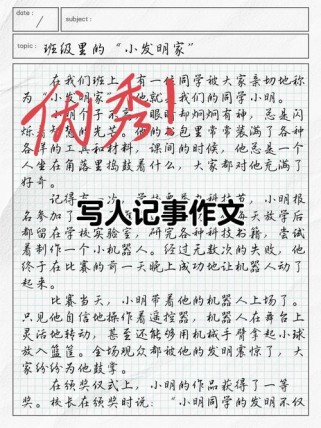 date:
subject:
topic: 班级里的“小发明家”
在我们班上，有一位同学被大家亲切地称
为“小发明家”，他就是我们的同学小明。
小明个子不高，眼睛却炯炯有神，总是闪
烁着智慧的光芒。他的书包里常常装满了各种
各样的工具和材料，课间的时候，他总是一个
人坐在角落里捣鼓着什么，大家都对他充满了
好奇。
优秀！
记得有一次，学校要举办科技节，小明报
名参加了
天放学后
写人记事作文
都留在学校实验室，研究各种科技书籍，尝试
着制作一个小机器人。经过无数次的失败，他
终于在比赛的前一天晚上成功地让机器人动了
起来。
比赛当天，小明带着他的机器人上场了。
只见他自信地操作着遥控器，机器人在舞台上
灵活地转动，甚至还能够用机械手臂拿起小球
放入篮筐。全场观众都被他的发明震惊了，大
家纷纷为他鼓掌。
在颁奖仪式上，小明的作品获得了一等
奖。校长在颁奖时说：“小明同学的发明不仅